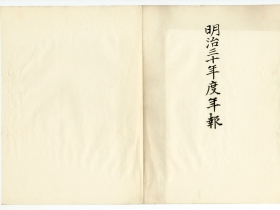 明治三十年度年報